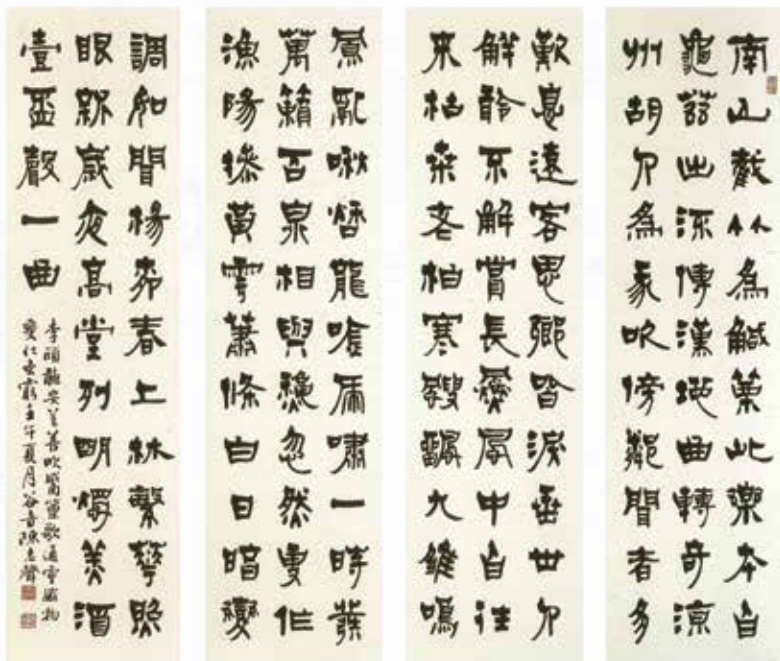 南山截竹為觱篥此樂本自
龜茲出流傳漢地曲轉奇涼
州胡人為我吹傍鄰聞者多
歎息遠客思鄉皆淚垂世人
解聆不解賞長飆風中自往
來枯桑老柏寒颼飀九雛鳴
鳳亂啾啾龍吟虎嘯一時發
萬籟百泉相與龝忽然更作
漁陽摻黃雲蕭條白日暗變
調如聞楊柳春上林繁華照
眼新歲夜高堂列明燭美酒
壹盃聲一曲
李頎聽安萬善吹觱篥歌通靈感物
變化無窮壬午夏月谷音陳志聲